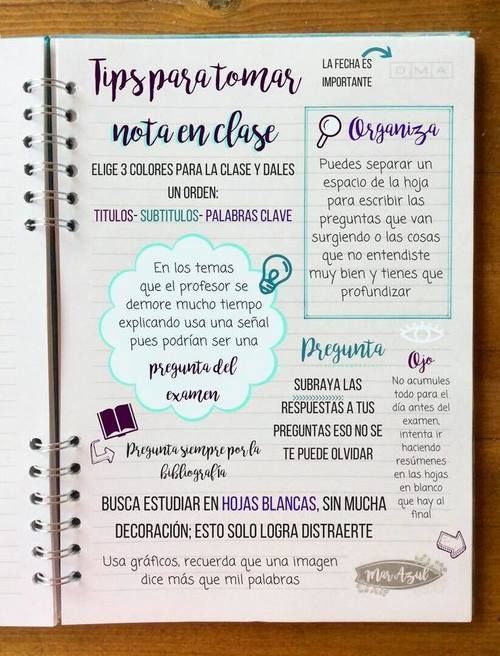 Tips para tomar
nota en clase
LA FECHA ES
IMPORTANTE
D M A
ELIGE 3 COLORES PARA LA CLASE Y DALES
UN ORDEN:
TITULOS- SUBTITULOS- PALABRAS CLAVE
Organiza
Puedes separar un
espacio de la hoja
para escribir las
preguntas que van
surgiendo o las cosas
que no entendiste
muy bien y tienes que
profundizar
En los temas
que el profesor se
demore mucho tiempo
explicando usa una señal
pues podrían ser una
pregunta del
examen
Pregunta
SUBRAYA LAS
RESPUESTAS A TUS
PREGUNTAS ESO NO SE
TE PUEDE OLVIDAR
Ojo
No acumules
todo para el
día antes del
examen,
intenta ir
haciendo
resúmenes
en las hojas
en blanco
que hay al
final
Pregunta siempre por la
bibliografía
BUSCA ESTUDIAR EN HOJAS BLANCAS, SIN MUCHA
DECORACIÓN; ESTO SOLO LOGRA DISTRAERTE
Usa gráficos, recuerda que una imagen
dice más que mil palabras
Mar Azul